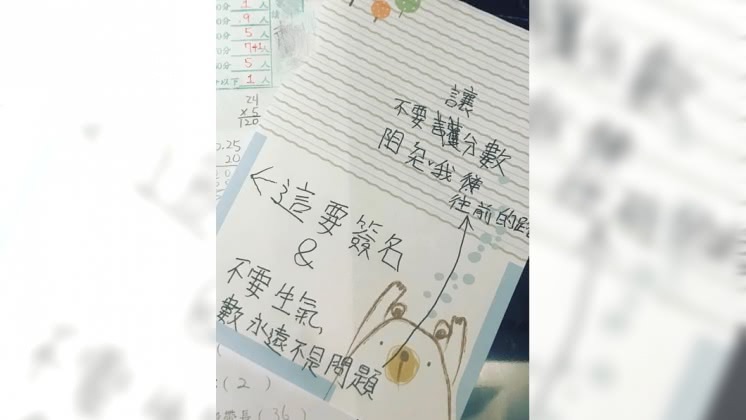 1 人
9 人
5 人
7+1 人
5 人
1 人
24
×5
120
.25
20
讓
不要讓分數
阻
我
往前的
←這要簽名
&
不要生氣
數永遠不是問題
( 2 )
( 36 )